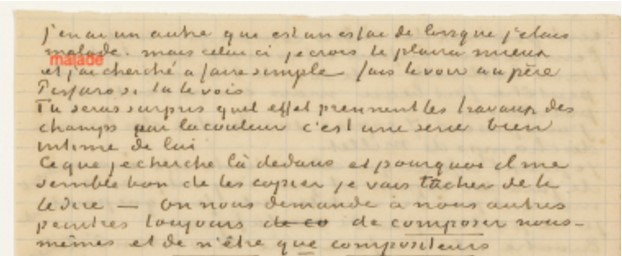 j'en ai un autre que est un essai de lorsque j'etais
malade. mais celui ci je crois te plaira mieux
malade
et j'ai cherché a faire simple fais le voir au père
Pissaro si tu le vois
Tu seras surpris quel effet prennent les travaux des
champs par la couleur c'est une serie bien
intime de lui
Ce que je cherche là dedans et pourquoi il me
semble bon de les copier je vais tâcher de te
le dire — on nous demande à nous autres
peintres toujours de co de composer nous-
mêmes et de n'être que compositeurs